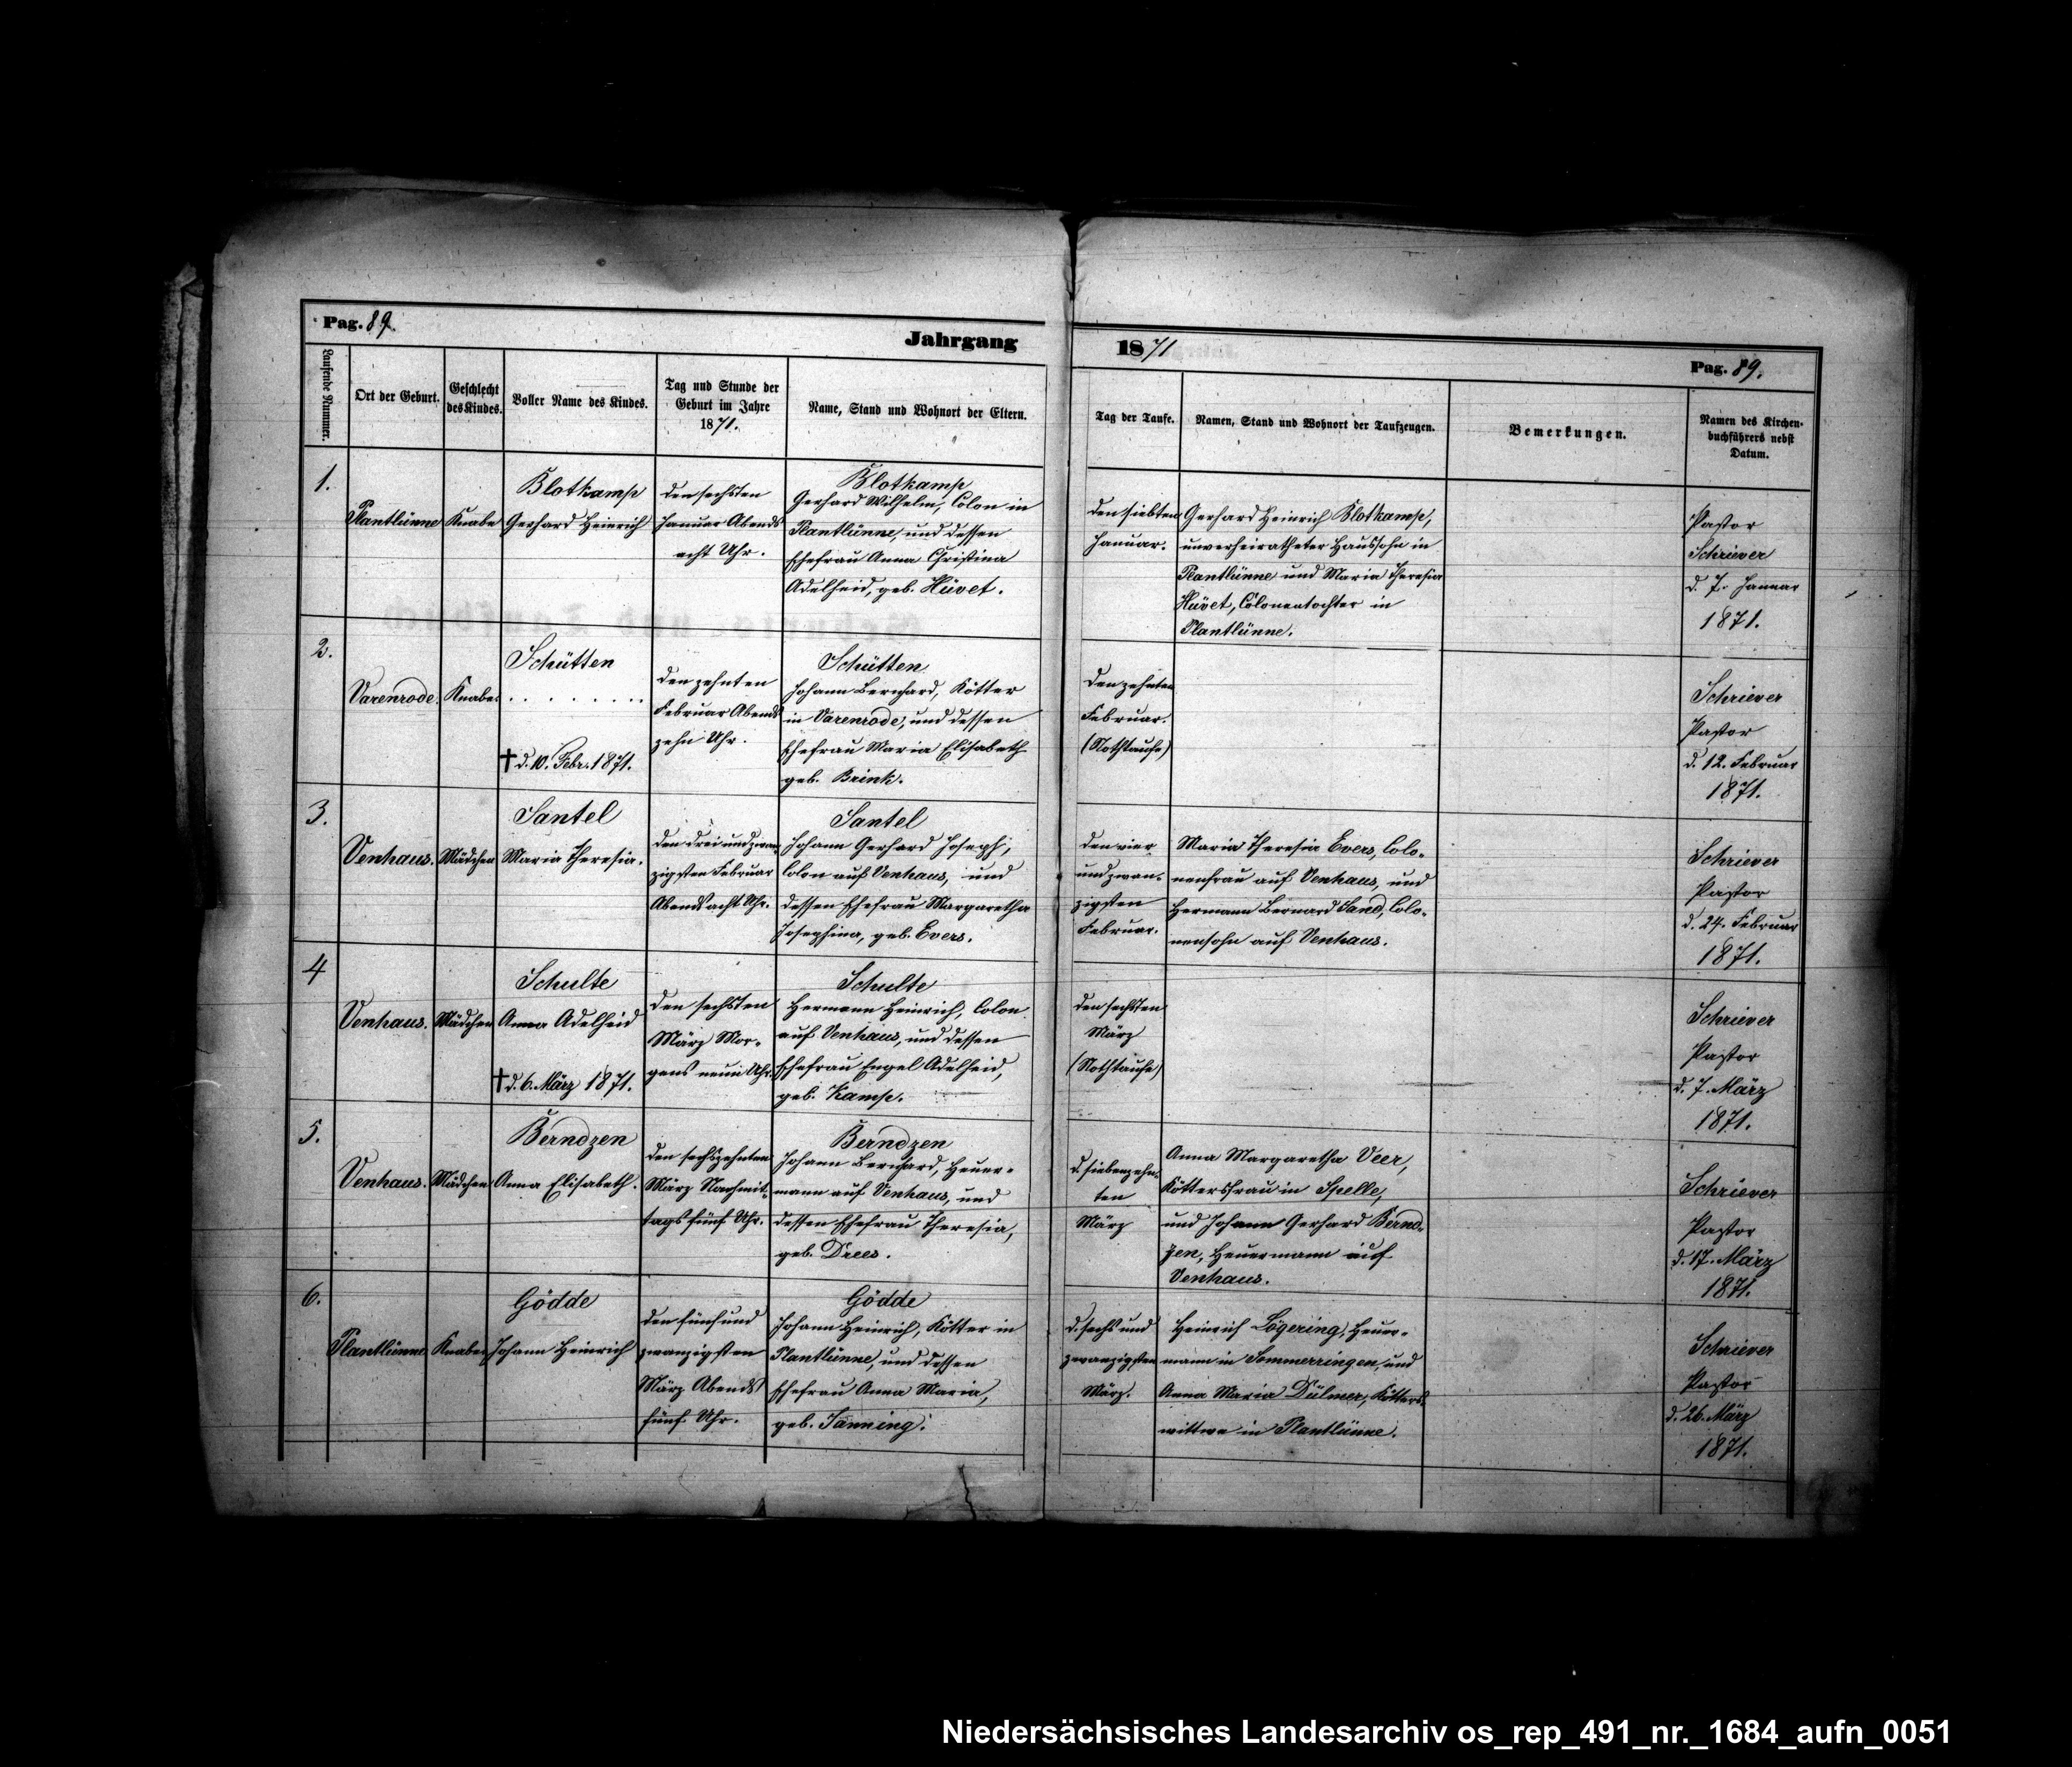 Pag. 89.
Jahrgang
1871
Pag. 89.
Laufende Nummer.
Ort der Geburt.
Geschlecht
des Kindes.
Voller Name des Kindes.
Tag und Stunde der
Geburt im Jahre
1871.
Name, Stand und Wohnort der Eltern.
Tag der Taufe.
Namen, Stand und Wohnort der Taufzeugen.
Bemerkungen.
Namen des Kirchen-
buchführers nebst
Datum.
1.
Plantlünne
Knabe
Blotkamp
Gerhard Heinrich
den sechsten
Januar Abends
acht Uhr.
Blotkamp
Gerhard Wilhelm, Colon in
Plantlünne, und dessen
Ehefrau Anna Christina
Adelheid, geb. Hüvet.
den siebten
Januar.
Gerhard Heinrich Blotkamp,
unverheiratheter Haussohn in
Plantlünne und Maria Theresia
Hüvet, Colonentochter in
Plantlünne.
Pastor
Schriever
d. 7. Januar
1871.
2.
Varenrode.
Knabe.
Schütten
. . . . . . .
† d. 10. Febr. 1871.
den zehnten
Februar Abends
zehn Uhr.
Schütten
Johann Bernhard, Kötter
in Varenrode, und dessen
Ehefrau Maria Elisabeth
geb. Brink.
den zehnten
Februar.
(Nothtaufe)
Schriever
Pastor
d. 12. Februar
1871.
3.
Venhaus.
Mädchen
Santel
Maria Theresia.
den drei und zwan-
zigsten Februar
Abends acht Uhr.
Santel
Johann Gerhard Joseph,
Colon auf Venhaus, und
dessen Ehefrau Margaretha
Josephina, geb. Evers.
den vier
und zwan-
zigsten
Februar.
Maria Theresia Evers, Colo-
nenfrau auf Venhaus, und
Hermann Bernard Sand, Colo-
nensohn auf Venhaus.
Schriever
Pastor
d. 24. Februar
1871.
4
Venhaus.
Mädchen
Schulte
Anna Adelheid
† d. 6. März 1871.
den sechsten
März Mor-
gens neun Uhr.
Schulte
Hermann Heinrich, Colon
auf Venhaus, und dessen
Ehefrau Engel Adelheid,
geb. Kamp.
den sechsten
März
(Nothtaufe)
Schriever
Pastor
d. 7. März
1871.
5.
Venhaus.
Mädchen
Berndzen
Anna Elisabeth.
den sechszehnten
März Nachmit-
tags fünf Uhr.
Berndzen
Johann Bernhard, Heuer-
mann auf Venhaus, und
dessen Ehefrau Theresia,
geb. Drees.
d. siebenzehn-
ten
März
Anna Margaretha Veer,
Köttersfrau in Spelle,
und Johann Gerhard Bernd-
zen, Heuermann auf
Venhaus.
Schriever
Pastor
d. 17. März
1871.
6.
Plantlünne
Knabe
Gödde
Johann Heinrich
den fünf und
zwanzigsten
März Abends
fünf Uhr.
Gödde
Johann Heinrich, Kötter in
Plantlünne, und dessen
Ehefrau Anna Maria,
geb. Sanning.
d. sechs und
zwanzigsten
März.
Heinrich Lögering, Heuer-
mann in Sommerringen, und
Anna Maria Dülmer, Kötters-
wittwe in Plantlünne.
Schriever
Pastor
d. 26. März
1871.
Niedersächsisches Landesarchiv os_rep_491_nr._1684_aufn_0051